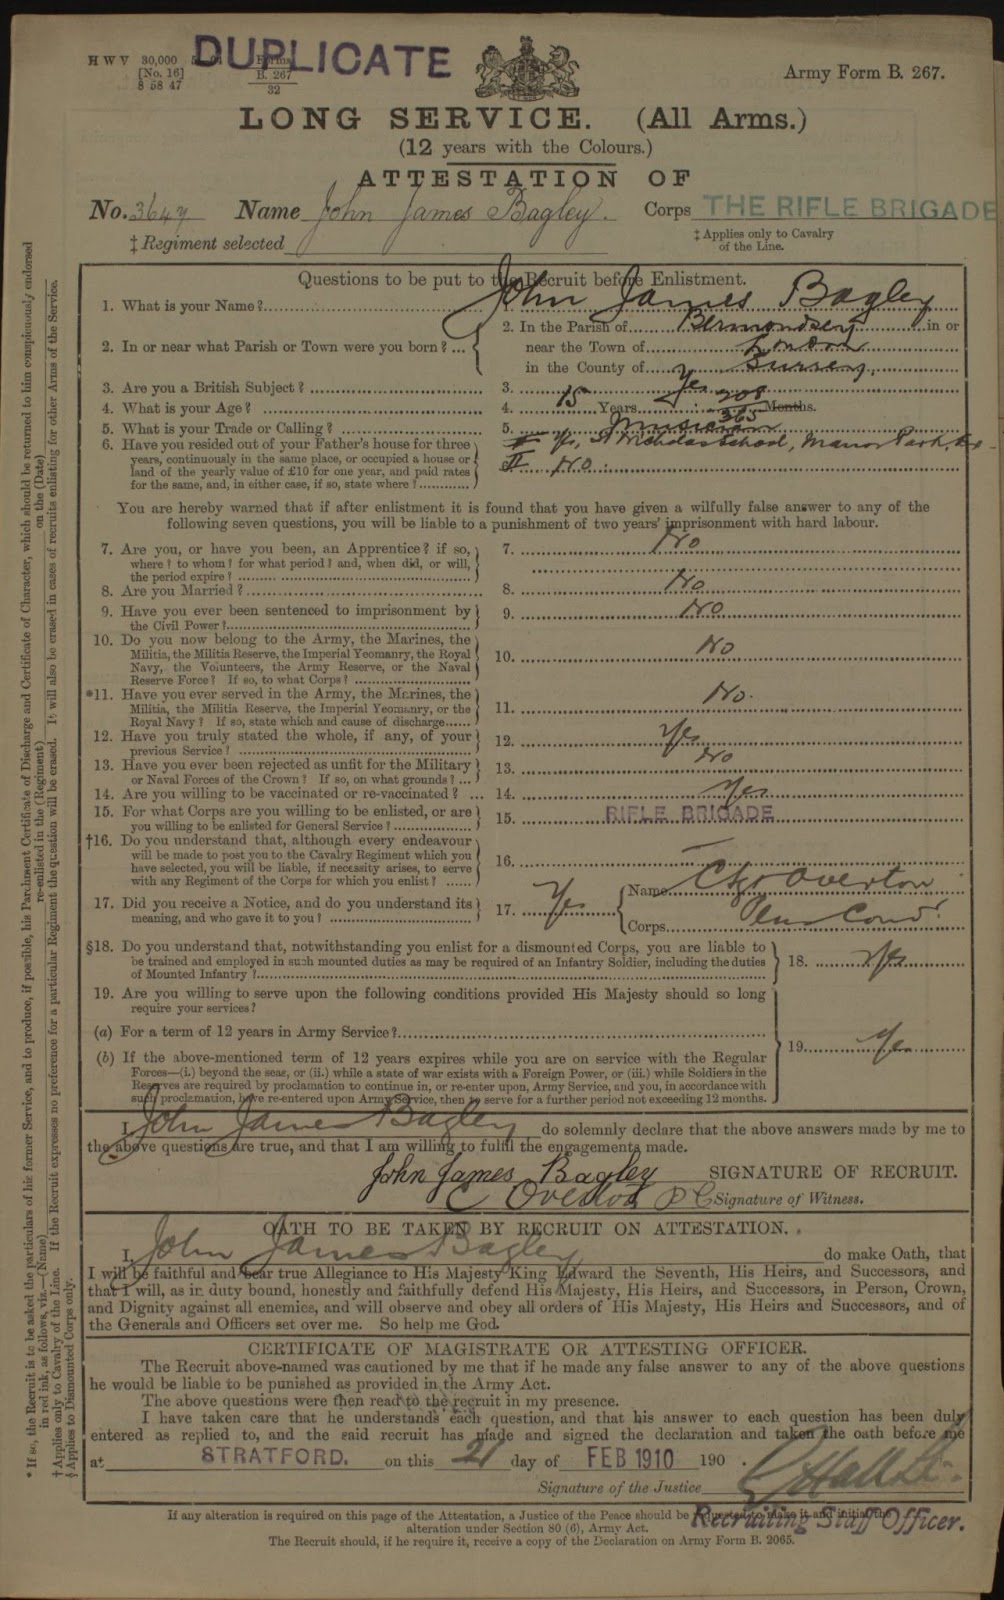 H W V 30,000
[No. 16]
8 58 47
Forms
B. 267
32
DUPLICATE
Army Form B. 267.
LONG SERVICE. (All Arms.)
(12 years with the Colours.)
ATTESTATION OF
No. 3647 Name John James Bagley. Corps THE RIFLE BRIGADE
‡ Regiment selected
‡ Applies only to Cavalry
of the Line.
Questions to be put to the Recruit before Enlistment.
1. What is your Name? 1. John James Bagley
2. In or near what Parish or Town were you born? ...
2. In the Parish of Bermondsey in or
near the Town of London
in the County of Surrey.
3. Are you a British Subject? 3. Yes
4. What is your Age? 4. 15 Years 208/365 Months.
5. What is your Trade or Calling? 5. Musician
6. Have you resided out of your Father's house for three
years, continuously in the same place, or occupied a house or
land of the yearly value of £10 for one year, and paid rates
for the same, and, in either case, if so, state where?
I Yes, St Nicholas School, Manor Park,
II No.
You are hereby warned that if after enlistment it is found that you have given a wilfully false answer to any of the
following seven questions, you will be liable to a punishment of two years' imprisonment with hard labour.
7. Are you, or have you been, an Apprentice? if so,
where? to whom? for what period? and, when did, or will,
the period expire?
7. No
8. Are you Married? 8. No
9. Have you ever been sentenced to imprisonment by
the Civil Power?
9. No
10. Do you now belong to the Army, the Marines, the
Militia, the Militia Reserve, the Imperial Yeomanry, the Royal
Navy, the Volunteers, the Army Reserve, or the Naval
Reserve Force? If so, to what Corps?
10. No
*11. Have you ever served in the Army, the Marines, the
Militia, the Militia Reserve, the Imperial Yeomanry, or the
Royal Navy? If so, state which and cause of discharge
11. No.
12. Have you truly stated the whole, if any, of your
previous Service?
12. Yes
13. Have you ever been rejected as unfit for the Military
or Naval Forces of the Crown? If so, on what grounds? ...
13. No
14. Are you willing to be vaccinated or re-vaccinated? ... 14. Yes
15. For what Corps are you willing to be enlisted, or are
you willing to be enlisted for General Service?
15. RIFLE BRIGADE
†16. Do you understand that, although every endeavour
will be made to post you to the Cavalry Regiment which you
have selected, you will be liable, if necessity arises, to serve
with any Regiment of the Corps for which you enlist?
16. —
17. Did you receive a Notice, and do you understand its
meaning, and who gave it to you?
17. Yes
Name Overton
Corps
§18. Do you understand that, notwithstanding you enlist for a dismounted Corps, you are liable to
be trained and employed in such mounted duties as may be required of an Infantry Soldier, including the duties
of Mounted Infantry?
18. Yes
19. Are you willing to serve upon the following conditions provided His Majesty should so long
require your services?
(a) For a term of 12 years in Army Service?
(b) If the above-mentioned term of 12 years expires while you are on service with the Regular
Forces—(i.) beyond the seas, or (ii.) while a state of war exists with a Foreign Power, or (iii.) while Soldiers in the
Reserves are required by proclamation to continue in, or re-enter upon, Army Service, and you, in accordance with
such proclamation, have re-entered upon Army Service, then to serve for a further period not exceeding 12 months.
19. Yes
I John James Bagley do solemnly declare that the above answers made by me to
the above questions are true, and that I am willing to fulfil the engagements made.
John James Bagley SIGNATURE OF RECRUIT.
C Overton Signature of Witness.
OATH TO BE TAKEN BY RECRUIT ON ATTESTATION.
I John James Bagley do make Oath, that
I will be faithful and bear true Allegiance to His Majesty King Edward the Seventh, His Heirs, and Successors, and
that I will, as in duty bound, honestly and faithfully defend His Majesty, His Heirs, and Successors, in Person, Crown,
and Dignity against all enemies, and will observe and obey all orders of His Majesty, His Heirs and Successors, and of
the Generals and Officers set over me. So help me God.
CERTIFICATE OF MAGISTRATE OR ATTESTING OFFICER.
The Recruit above-named was cautioned by me that if he made any false answer to any of the above questions
he would be liable to be punished as provided in the Army Act.
The above questions were then read to the recruit in my presence.
I have taken care that he understands each question, and that his answer to each question has been duly
entered as replied to, and the said recruit has made and signed the declaration and taken the oath before me
at STRATFORD. on this 21 day of FEB 1910 190 .
Signature of the Justice
Recruiting Staff Officer.
If any alteration is required on this page of the Attestation, a Justice of the Peace should be requested to make it and initial the
alteration under Section 80 (6), Army Act.
The Recruit should, if he require it, receive a copy of the Declaration on Army Form B. 2065.
* If so, the Recruit is to be asked the particulars of his former Service, and to produce, if possible, his Parchment Certificate of Discharge and Certificate of Character, which should be returned to him conspicuously endorsed
in red ink, as follows, viz.—(Name) re-enlisted in the (Regiment) on the (Date)
† Applies only to Cavalry of the Line. If the Recruit expresses no preference for a particular Regiment the question will be erased. It will also be erased in cases of recruits enlisting for other Arms of the Service.
§ Applies to Dismounted Corps only.